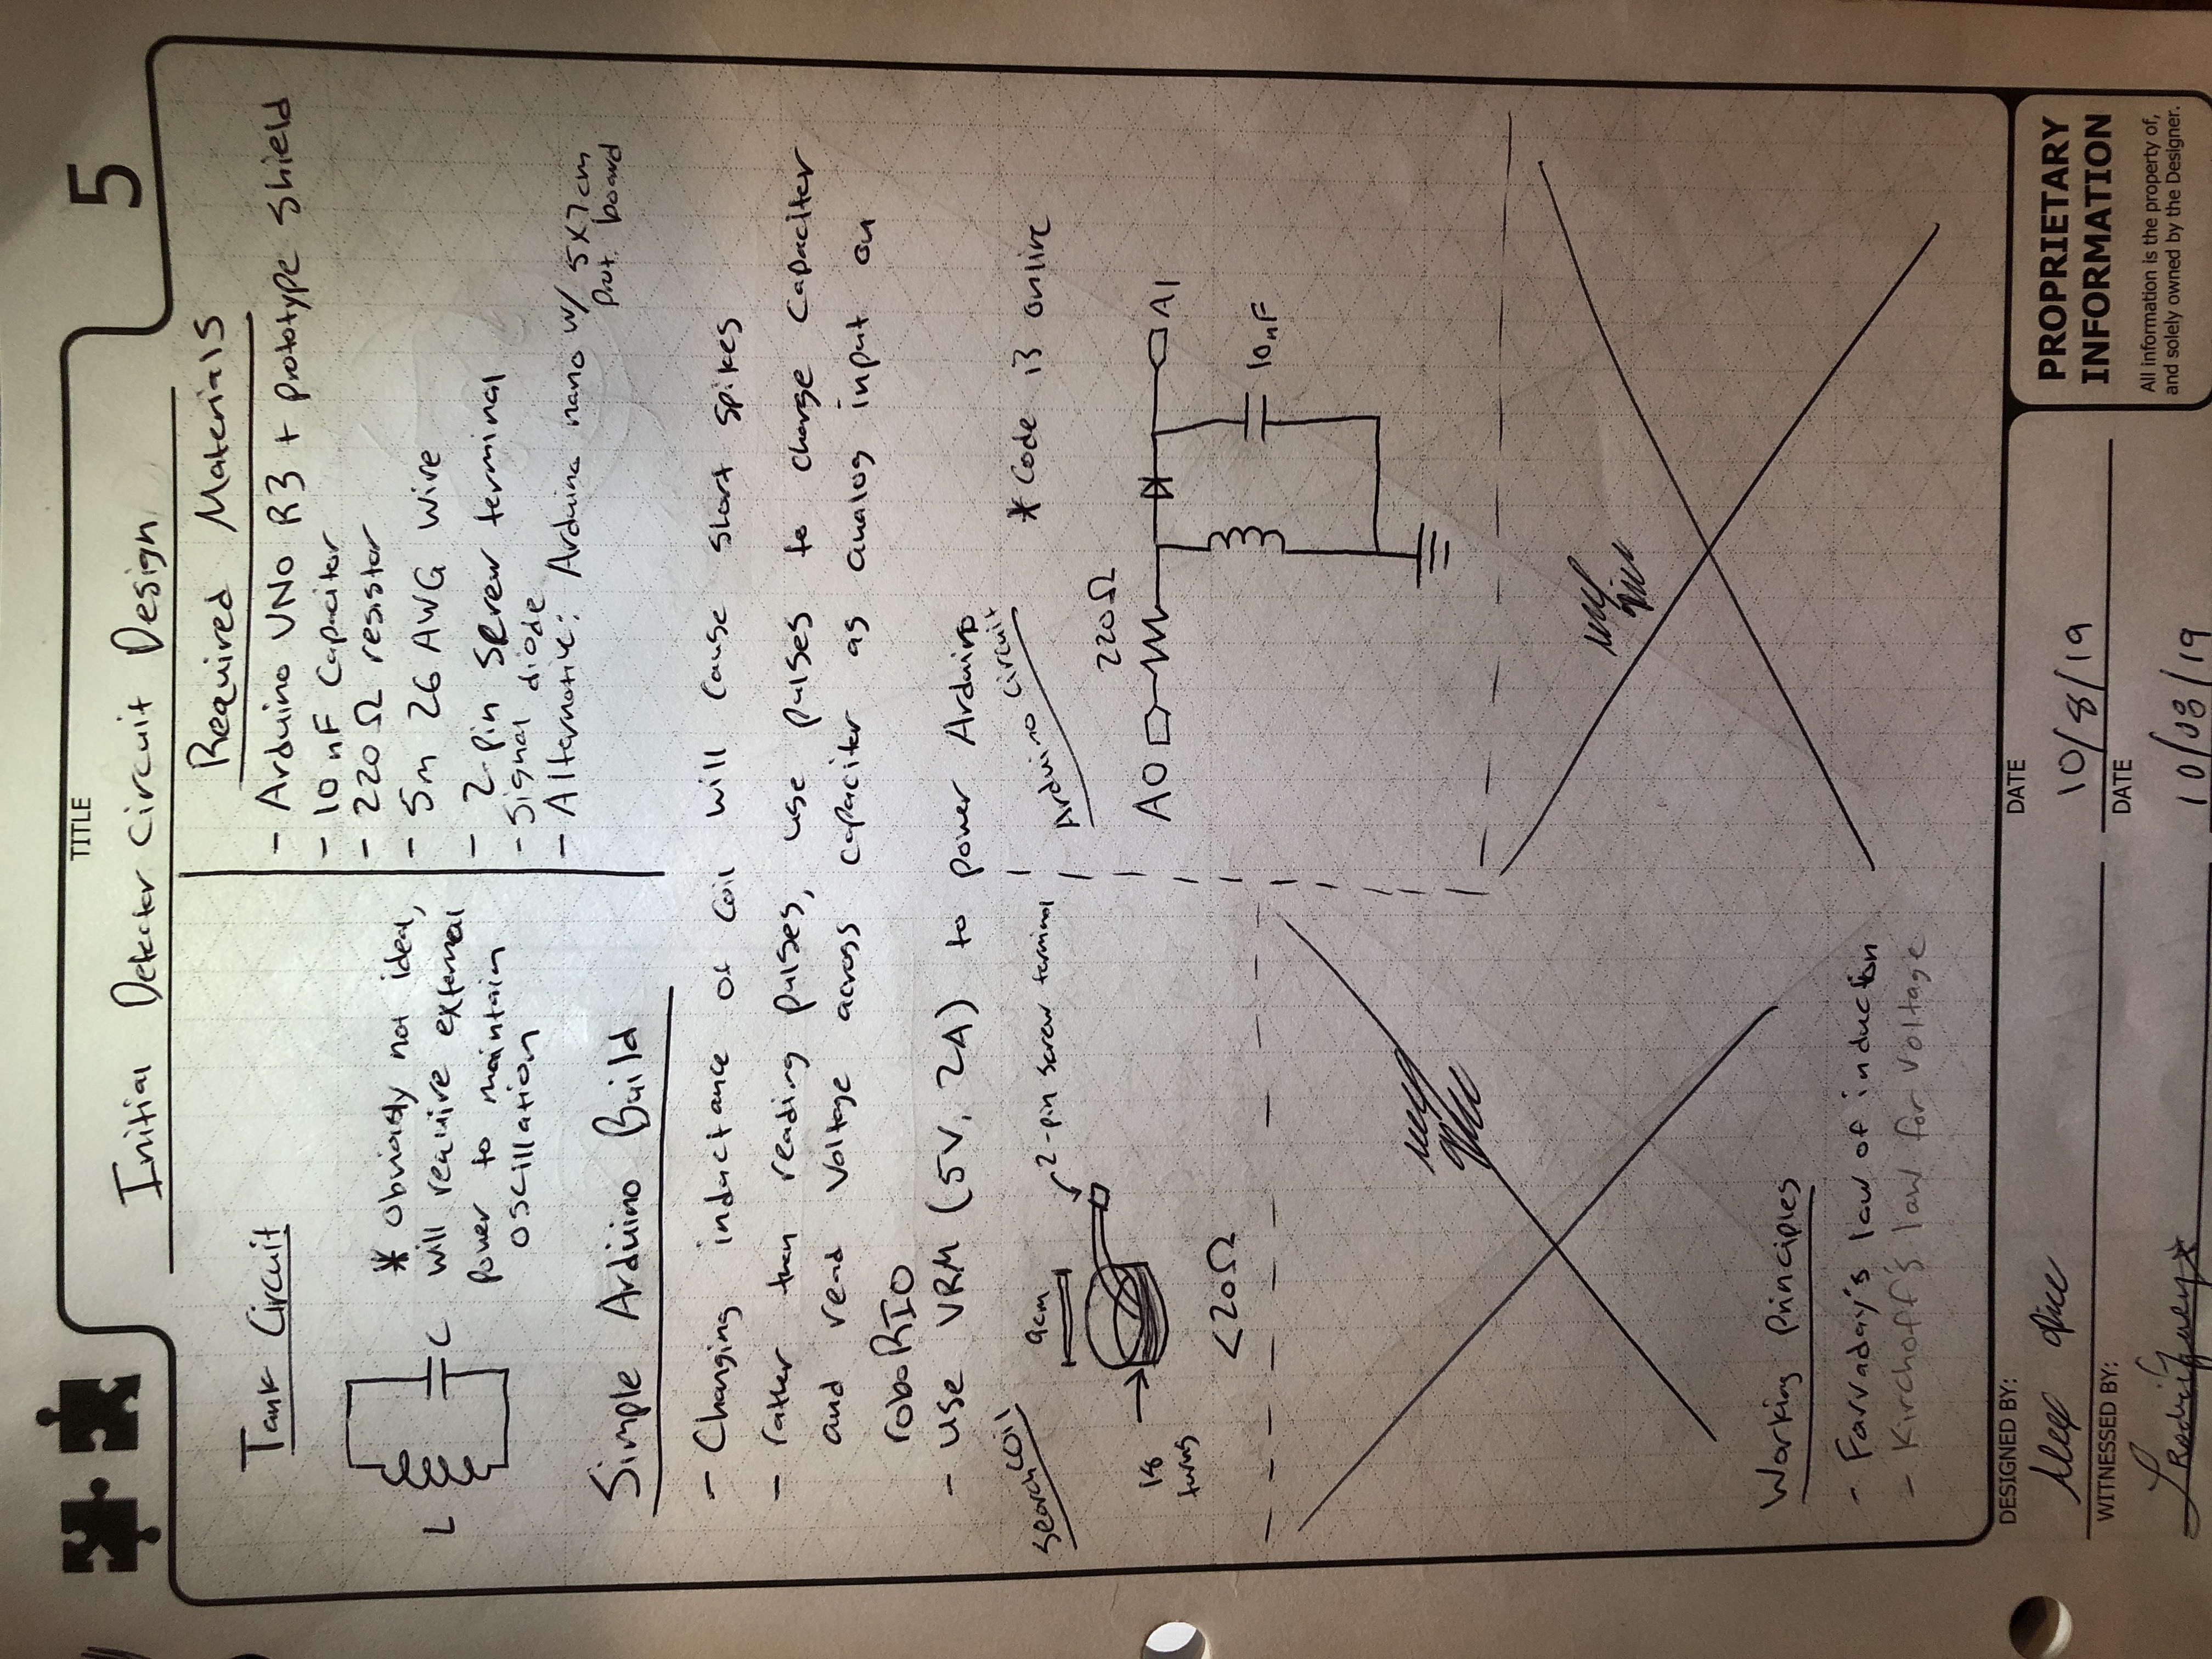 TITLE
5
Initial Detector Circuit Design
Tank Circuit
L
C
* Obviously not ideal,
will require external
power to maintain
oscillation
Required Materials
- Arduino UNO R3 + prototype shield
- 10 nF Capacitor
- 220 Ω resistor
- 5m 26 AWG wire
- 2-pin screw terminal
- Signal diode
- Alternative: Arduino nano w/ 5x7cm
prot. board
Simple Arduino Build
- Changing inductance of coil will cause short spikes
- rather than reading pulses, use pulses to charge capacitor
and read voltage across capacitor as analog input on
roboRIO
- use VRM (5V, 2A) to power Arduino
Search coil
9cm
2-pin screw terminal
18
turns
<20Ω
Arduino Circuit
* Code is online
220Ω
A0
A1
10nF
Working Principles
- Farraday's law of induction
- Kirchoff's law for voltage
DESIGNED BY:
Alex
DATE
10/8/19
WITNESSED BY:
DATE
10/08/19
PROPRIETARY
INFORMATION
All information is the property of,
and solely owned by the Designer.